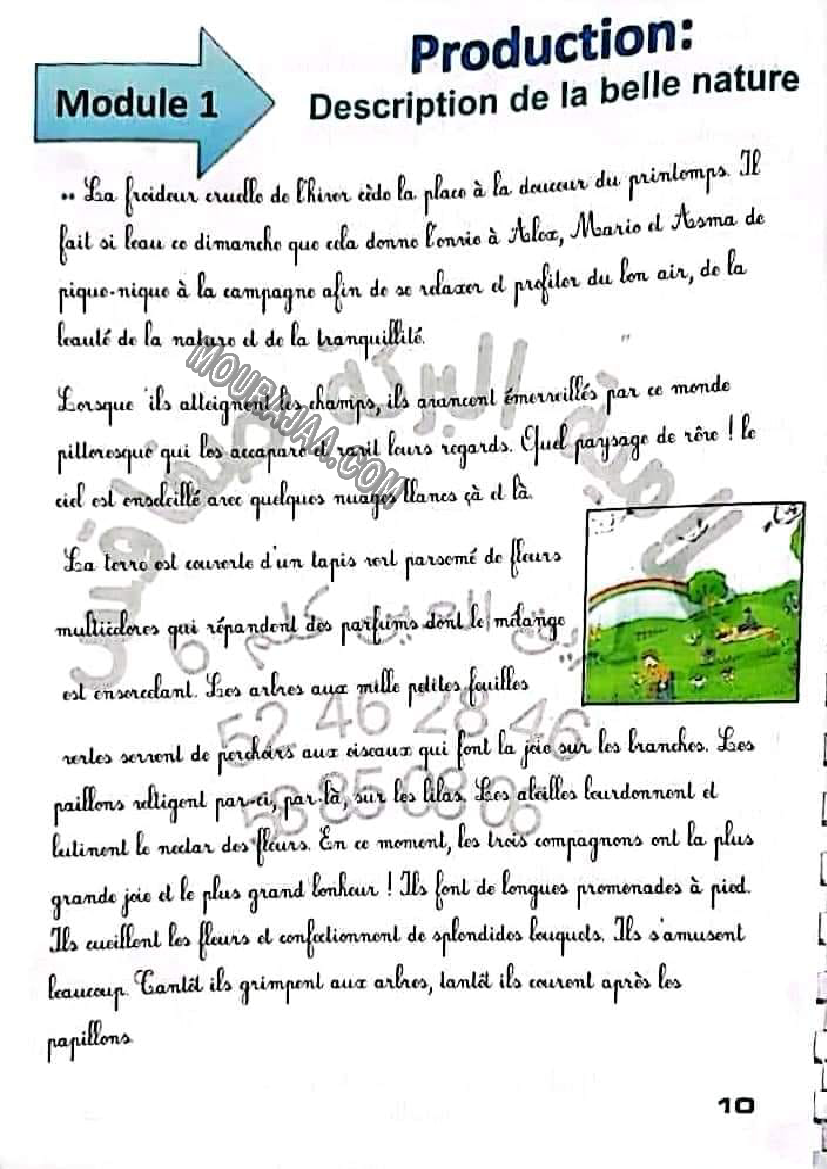 Production:
Module 1
Description de la belle nature
.. La froideur cruelle de l'hiver cède la place à la douceur du printemps. Il
fait si beau ce dimanche que cela donne l'envie à Alex, Mario et Asma de
pique-nique à la campagne afin de se relaxer et profiter du bon air, de la
beauté de la nature et de la tranquillité.
Lorsque ils atteignent les champs, ils avancent émerveillés par ce monde
pittoresque qui les accapare et ravit leurs regards. Quel paysage de rêve ! le
ciel est ensoleillé avec quelques nuages blancs çà et là.
La terre est couverte d'un tapis vert parsemé de fleurs
multicolores qui répandent des parfums dont le mélange
est ensorcelant. Les arbres aux mille petites feuilles
vertes servent de perchoirs aux oiseaux qui font la joie sur les branches. Les
paillons voltigent par-ci, par-là, sur les lilas. Les abeilles bourdonnent et
butinent le nectar des fleurs. En ce moment, les trois compagnons ont la plus
grande joie et le plus grand bonheur ! Ils font de longues promenades à pied.
Ils cueillent les fleurs et confectionnent de splendides bouquets. Ils s'amusent
beaucoup. Tantôt ils grimpent aux arbres, tantôt ils courent après les
papillons.
MOURAJAA.COM
52 46 28 46
58 85 08 06
10